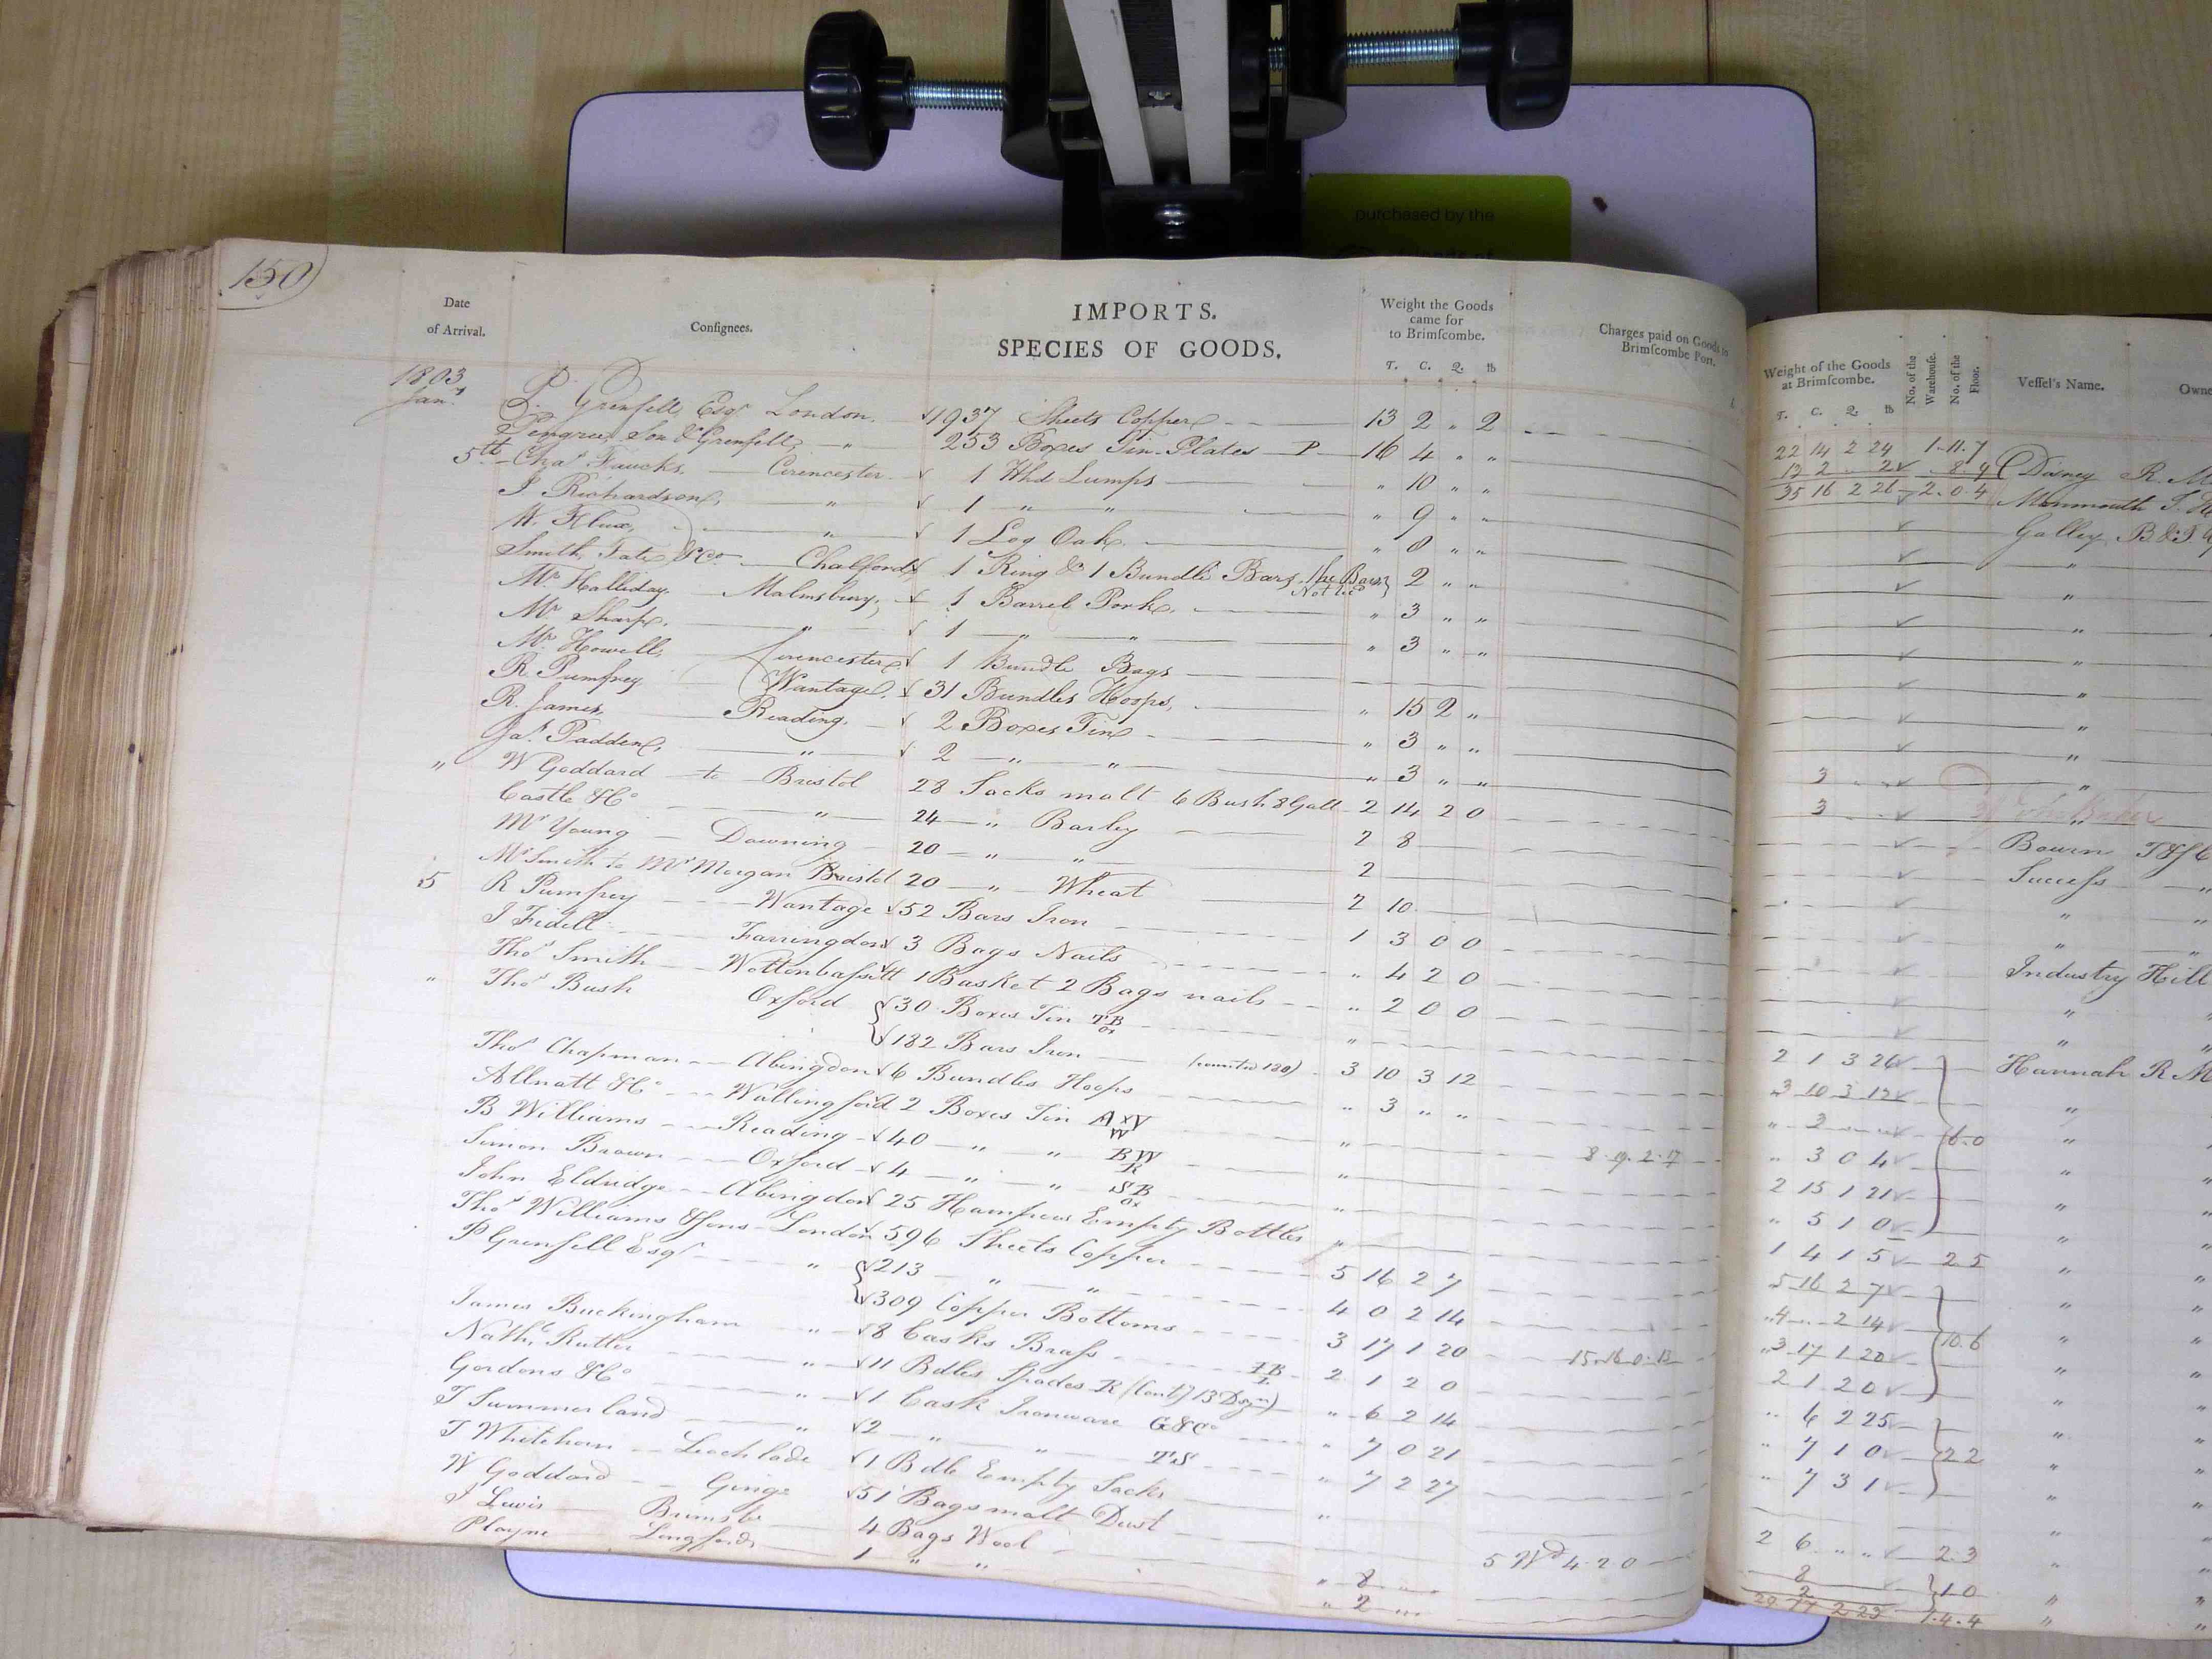 purchased by the
150
Date of Arrival.
Consignees.
IMPORTS.
SPECIES OF GOODS.
Weight the Goods came for to Brimscombe.
T. C. Q. lb
Charges paid on Goods to Brimscombe Port.
Weight of the Goods at Brimscombe.
T. C. Q. lb
No. of the Warehouse.
No. of the Floor.
Vessel's Name.
Owne
1803
Jany
P. Grenfell, Esqr London, 1937 Sheets Copper 13 2 " 2
Pengree, Son & Grenfell, " 253 Boxes Tin-Plates P 16 4 " " 22 14 2 24 1.11.7
5th Chas Faucks, Cirencester 1 Hhd Lumps " 10 " " 13 2 .. 2 .8.9 Disney R. M
J Richardson, " 1 " " " 9 " " 35 16 2 26 2.0.4 Monmouth T. H
W. Flux, " 1 Log Oak " 8 " " Galley B.&T.
Smith, Tate, & Co Chalford 1 Ring & 1 Bundle Bars, the Bars Not 2 " " "
Mr Halliday Malmsbury, 1 Barrel Pork " 3 " " "
Mr Sharp, " 1 " " " 3 " " "
Mr Howell, Cirencester 1 Bundle Bags "
R. Pumfrey Wantage, 31 Bundles Hoops, " 15 2 " "
R. James, Reading, 2 Boxes Tin " 3 " " "
Jas Padden, " 2 " " " 3 " " 3
" W Goddard to Bristol 28 Sacks malt 6 Bush 8 Gall 2 14 2 0 3
Castle & Co " 24 " Barley 2 8 Bourn T & J
Mr Young Downing 20 " " 2 Success "
Mr Smith to Mr Morgan Bristol 20 " Wheat 2 10 " "
5 R Pumfrey Wantage 52 Bars Iron 1 3 0 0 " "
J Fidell Farringdon 3 Bags Nails " 4 2 0 Industry Hill
Thos Smith Wottenbassett 1 Basket 2 Bags nails " 2 0 0 " "
" Thos Bush Oxford 30 Boxes Tin TB Ox " " "
182 Bars Iron (counted 180) 3 10 3 12 2 1 3 26 Hannah R M
Thos Chapman Abingdon 6 Bundles Hoops " 3 " " 3 10 3 12 "
Allnatt & Co Wallingford 2 Boxes Tin A W " " 3 6.0 "
B Williams Reading 40 " " BW R " 8.19.2.17 " 3 0 4 "
Simon Brown Oxford 4 " " SB Ox " 2 15 1 21 "
John Eldridge Abingdon 25 Hampers Empty Bottles " " 5 1 0 "
Thos Williams & Sons London 596 Sheets Copper 5 16 2 7 1 4 1 5 2 5 "
P Grenfell Esqr " 213 " " 4 0 2 14 5 16 2 7 "
309 Copper Bottoms 3 17 1 20 15.16.0.13 4 .. 2 14 10.6 "
James Buckingham " 8 Casks Brass IB L 2 1 2 0 3 17 1 20 "
Nathl Rutter " 11 Bdles Spades R (Cont 13 Dozn) " 6 2 14 2 1 2 0 "
Gordons & Co " 1 Cask Ironware G&Co " 7 0 21 " 6 2 25 "
T Summerland " 2 " " TS " 7 2 27 " 7 1 0 2 2 "
T Whitehorn Leachlade 1 Bdle Empty Sacks " " 7 3 1 "
W Goddard Ginge 51 Bags malt Dust 5 Wd 4.2.0 2 6 " " 2.3 "
J Lewis Brimsbe 4 Bags Wool " 8 8 1 0 "
Playne Longfords 1 " " " 2 2 "
1.4.4